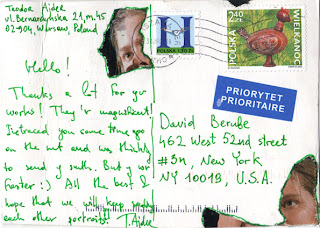 Teodor Ajder
vl. Bernardyńska 21, m. 45
02-904 Warsaw, Poland
Hello!
Thanks a lot for your
works! They'r magnificent!
I traced you some time ago
on the net and was thinking
to send y smth. But y wor
faster :) All the best &
hope that we will keep sending
each other portraits! T. Ajder
POLSKA 1,30 ZŁ
2,40
POLSKA
WIELKANOC
PRIORYTET
PRIORITAIRE
David Berube
462 West 52nd street
#3n, New York
NY 10019, U.S.A.